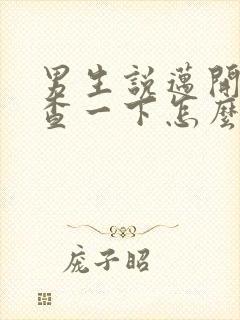 男生說邁開
查一下怎麼
庞子昭